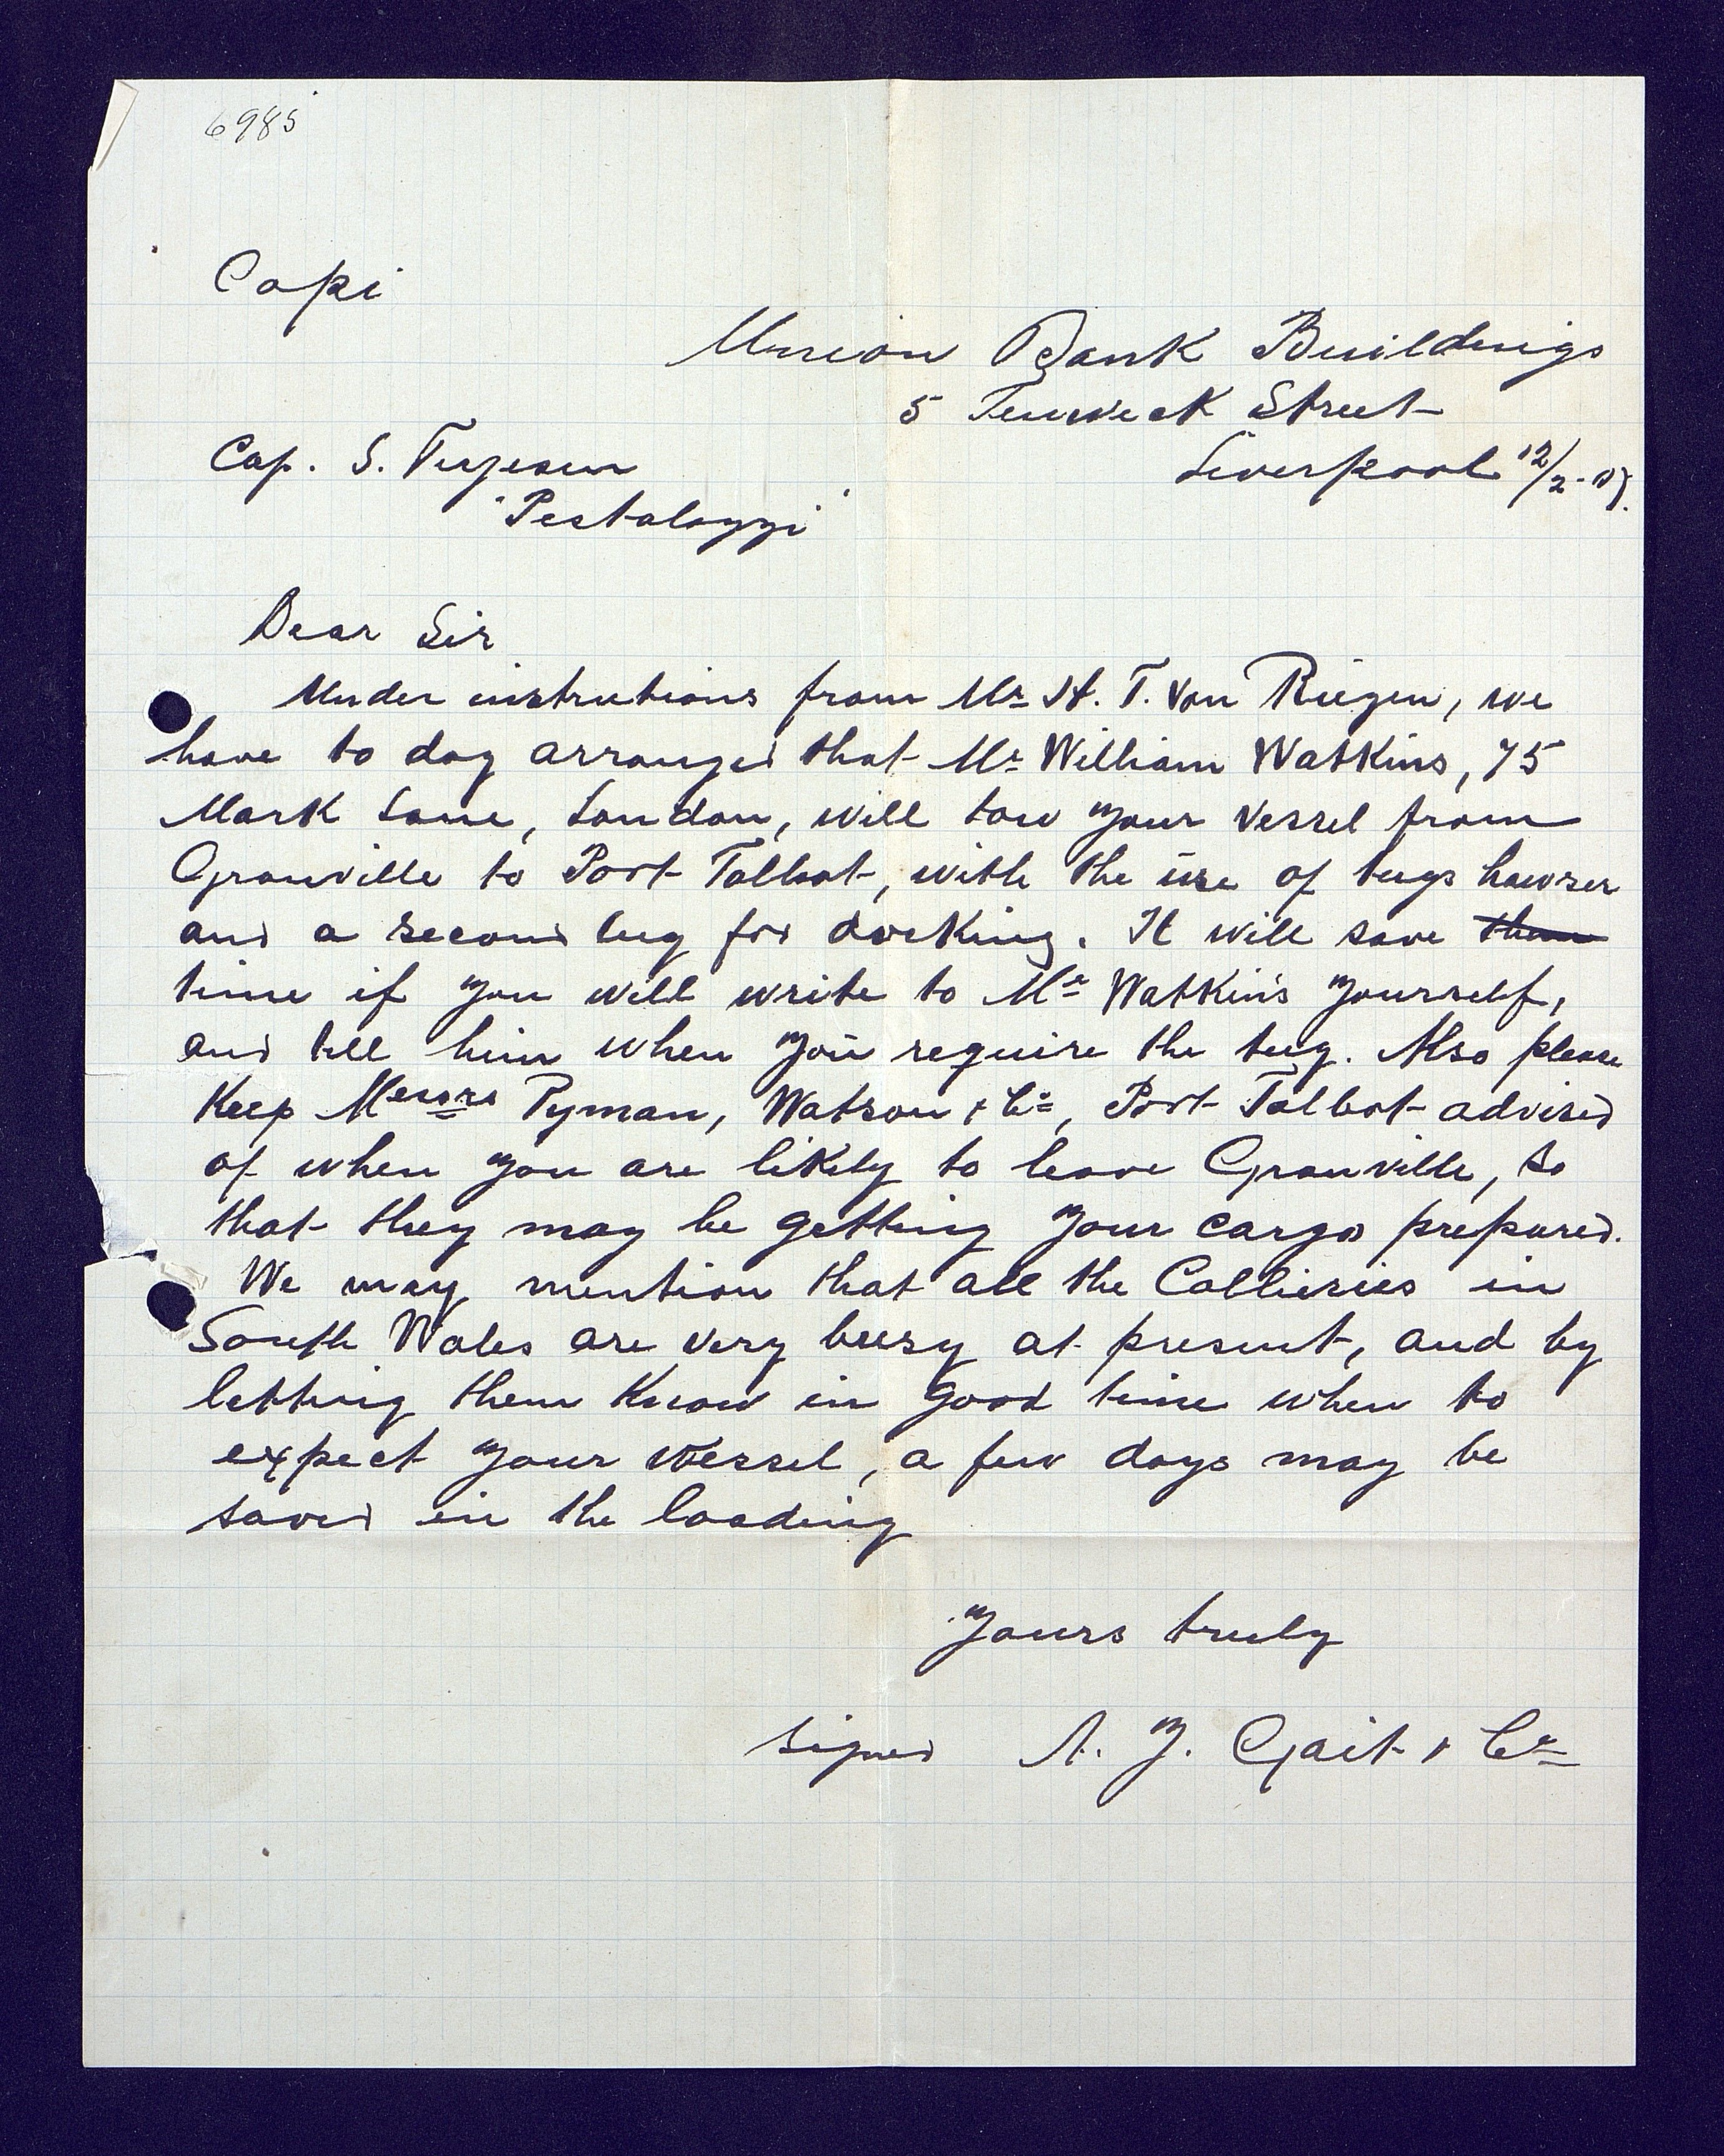 6985
Copi
Union Bank Buildings
5 Fenwick Street
Cap. S. Terjesen
Liverpool 12/2-07.
"Pestalozzi"
Dear Sir
Under instrutions from Mr H. T. Von Riegen, we
have to day arranged that Mr William Watkins, 75
Mark Lane, London, will tow your vessel from
Granville to Port Talbot, with the use of tugs hawser
and a second tug for docking. It will save them
time if you will write to Mr Watkins yourself,
and tell him when you require the tug. Also please
Keep Messrs Pyman, Watson & Co, Port Talbot advised
of when you are likely to leave Granville, so
that they may be getting your cargo prepared.
We may mention that all the Collieries in
South Wales are very busy at present, and by
letting them Know in good time when to
expect your vessel, a few days may be
saved in the loading
Yours truly
signed A. J. Gait & Co